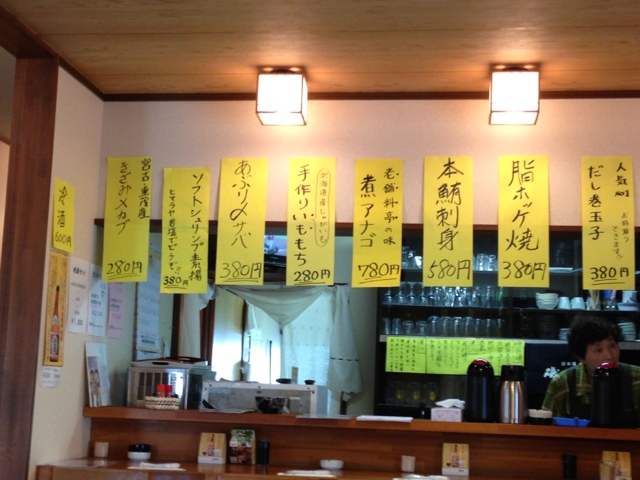 人気No.1
だし巻玉子
お持帰りできます。
380円
脂ホッケ焼
380円
本鮪刺身
580円
老舗料亭の味
煮アナゴ
780円
北海道産じゃがいも
手作りいももち
280円
あぶり〆サバ
380円
ソフトシュリンプ素揚
ヒマラヤ岩塩でどうぞ!!
380円
宮古重茂産
きざみメカブ
280円
冷酒
600円